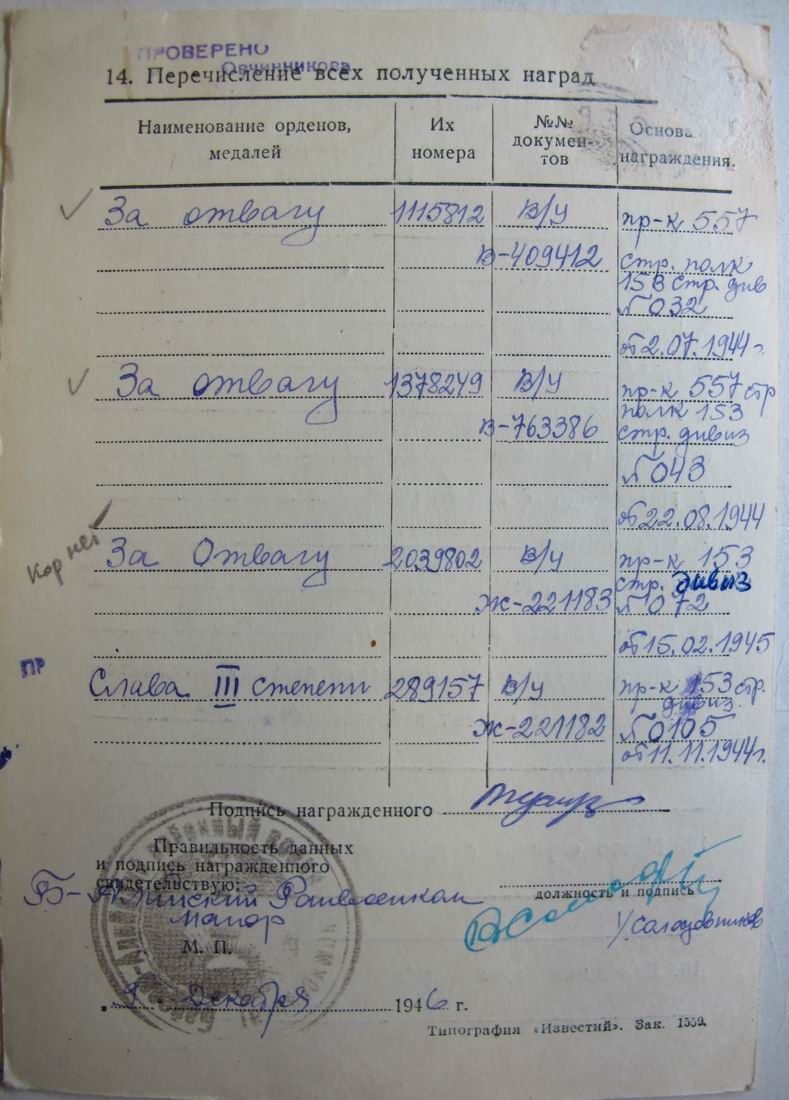 ПРОВЕРЕНО
Овчинникова
14. Перечисление всех полученных наград
Наименование орденов, медалей
Их номера
№№ докумен-тов
Основа награждения.
За отвагу 1115812 В/у пр-к 557
В-409412 стр. полк
153 стр. див
№ 032
от 2.07.1944 г.
За отвагу 1378249 В/у пр-к 557 стр
полк 153
В-763386 стр. дивиз
№ 043
от 22.08.1944
Кор нет
За Отвагу 2039802 В/у пр-к 153
стр. дивиз
Ж-221183 № 072
от 15.02.1945
ПР
Слава III степени 289157 В/у пр-к 153 стр.
дивиз.
Ж-221182 № 0105
от 11.11.1944г.
Подпись награжденного
Правильность данных
и подпись награжденного
свидетельствую:
должность и подпись
Майор
М. П.
9 Декабря 1946 г.
Типография «Известий». Зак. 1559.